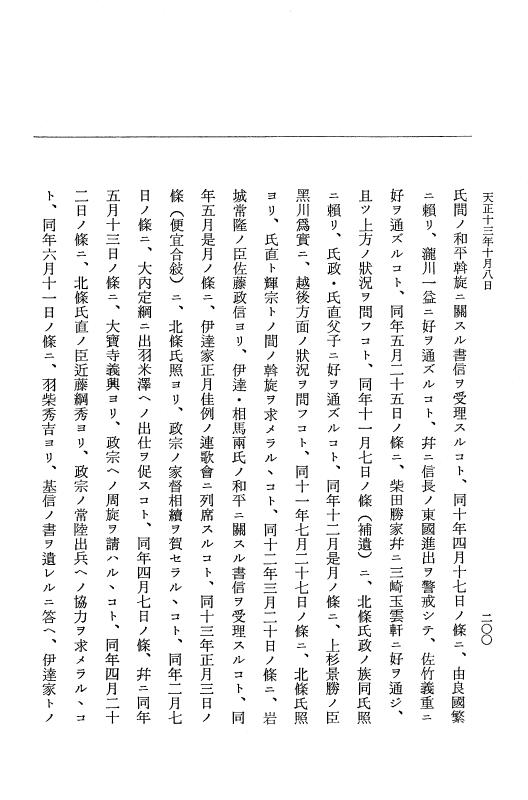 天正十三年十月八日
二〇〇
氏間ノ和平斡旋ニ關スル書信ヲ受理スルコト、同十年四月十七日ノ條ニ、由良國繁
ニ賴リ、瀧川一益ニ好ヲ通ズルコト、幷ニ信長ノ東國進出ヲ警戒シテ、佐竹義重ニ
好ヲ通ズルコト、同年五月二十五日ノ條ニ、柴田勝家幷ニ三崎玉雲軒ニ好ヲ通ジ、
且ツ上方ノ狀況ヲ問フコト、同年十一月七日ノ條（補遺）ニ、北條氏政ノ族同氏照
ニ賴リ、氏政・氏直父子ニ好ヲ通ズルコト、同年十二月是月ノ條ニ、上杉景勝ノ臣
黑川爲實ニ、越後方面ノ狀況ヲ問フコト、同十一年七月二十七日ノ條ニ、北條氏照
ヨリ、氏直ト輝宗トノ間ノ斡旋ヲ求メラルヽコト、同十二年三月二十日ノ條ニ、岩
城常隆ノ臣佐藤政信ヨリ、伊達・相馬兩氏ノ和平ニ關スル書信ヲ受理スルコト、同
年五月是月ノ條ニ、伊達家正月佳例ノ連歌會ニ列席スルコト、同十三年正月三日ノ
條（便宜合敍）ニ、北條氏照ヨリ、政宗ノ家督相續ヲ賀セラルヽコト、同年二月七
日ノ條ニ、大內定綱ニ出羽米澤ヘノ出仕ヲ促スコト、同年四月七日ノ條、幷ニ同年
五月十三日ノ條ニ、大寶寺義興ヨリ、政宗ヘノ周旋ヲ請ハルヽコト、同年四月二十
二日ノ條ニ、北條氏直ノ臣近藤綱秀ヨリ、政宗ノ常陸出兵ヘノ協力ヲ求メラルヽコ
ト、同年六月十一日ノ條ニ、羽柴秀吉ヨリ、基信ノ書ヲ遺レルニ答ヘ、伊達家トノ